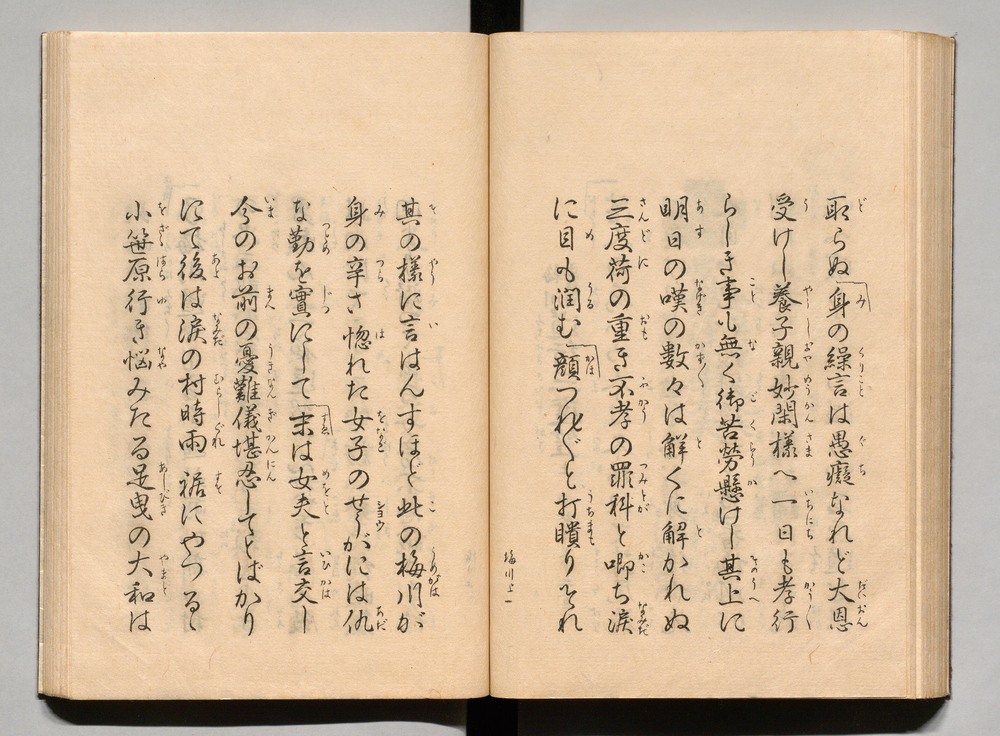 取らぬ「身の繰言は愚癡なれど大恩
受けし養子親妙閑様へ一日も孝行
らしき事も無く御苦労懸けし其上に
明日の嘆の数々は解くに解かれぬ
三度荷の重き不孝の罪科と喞ち涙
に目も潤む「顔つれ〴〵と打瞶りそれ
梅川上一
其の様に言はんすほど此の梅川が
身の辛さ惚れた女子のせうがには仇
な勤を実にして「末は女夫と言交し
今のお前の憂難儀堪忍してとばかり
にて後は涙の村時雨裾にやつるゝ
小笹原行き悩みたる足曳の大和は